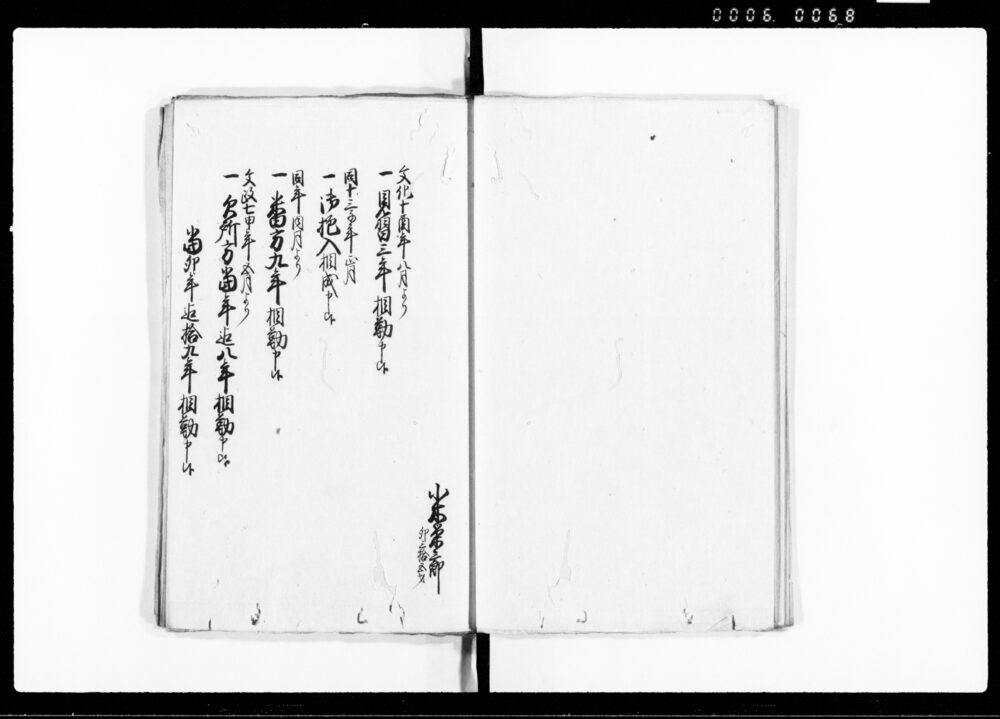 0006 0068
小林栄三郎
卯三拾五才
文化十酉年八月より
一見習三年相勤申候
同十三子年正月
一御抱入相成申候
同年同月より
一番方九年相勤申候
文政七申年五月より
一欠所方当年迄八年相勤申候
当卯年迄拾九年相勤申候